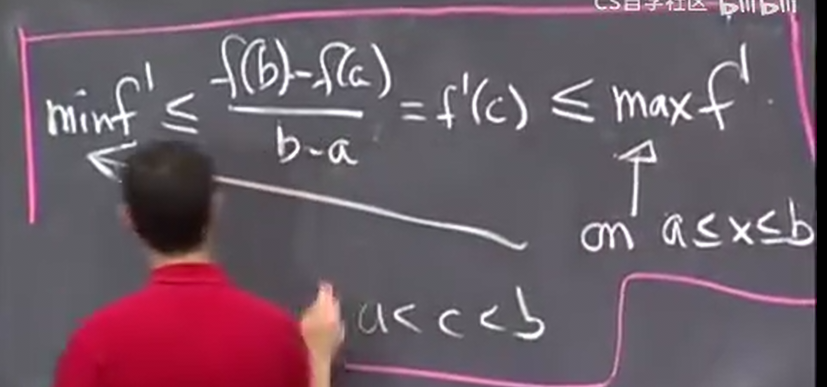 CS自学社区 bilibili
min f' ≤ f(b)-f(a) / b-a = f'(c) ≤ max f'
on a≤x≤b
a<c<b